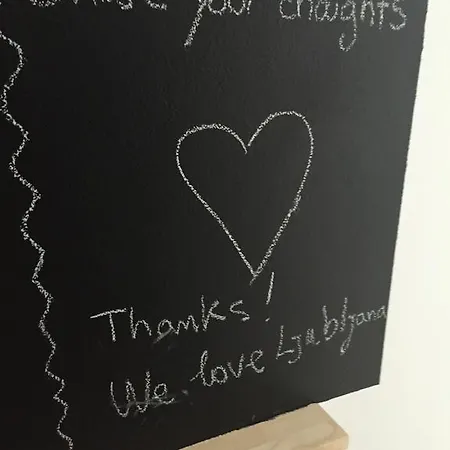 your thoughts
Thanks!
We love Ljubljana